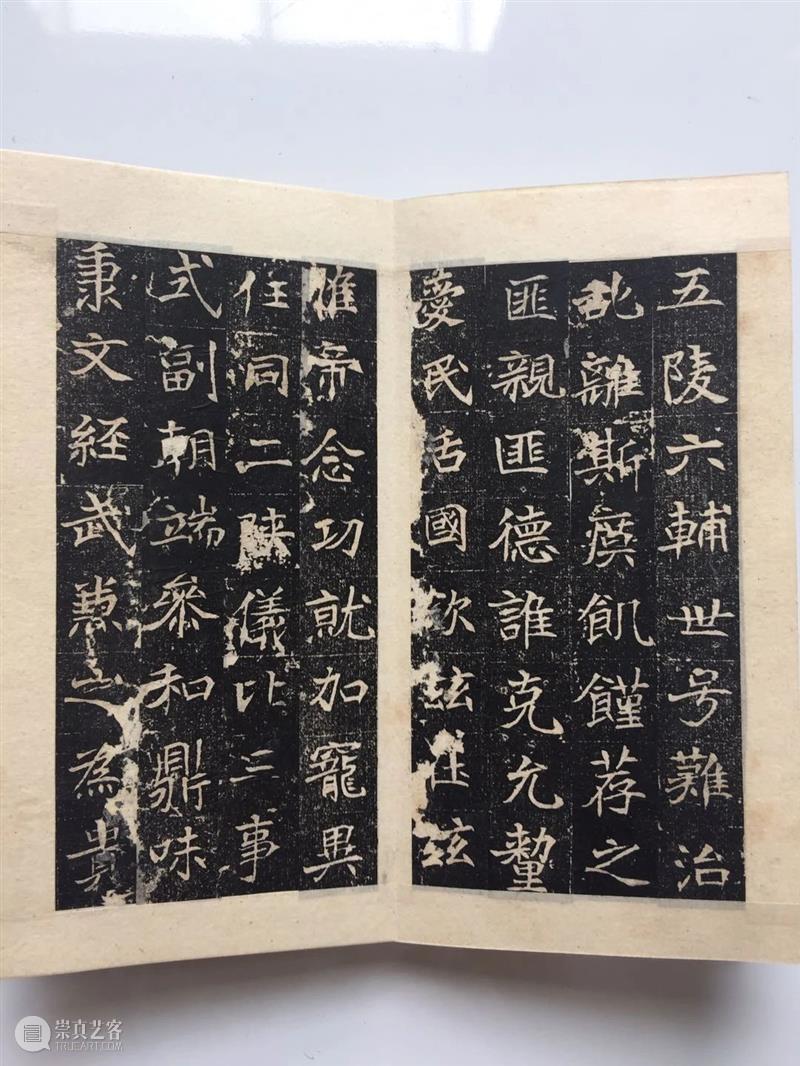 五陵六輔世号難治
乱離斯瘼飢饉荐之
匪親匪德誰克允釐
愛民活國玆在玆
惟帝念功就加寵異
任同二陝儀比三事
式副朝端叅和鼎味
秉文経武兼之為貴
崇真艺客
TRUEART.COM